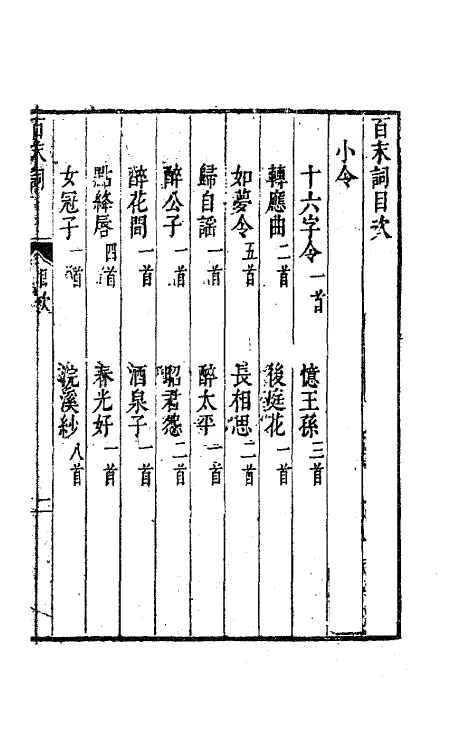 百末詞目次
小令
十六字令一首　憶王孫三首
轉應曲二首　後庭花一首
如夢令五首　長相思二首
歸自謠一首　醉太平一首
醉公子一首　昭君怨二首
醉花間一首　酒泉子一首
點絳唇四首　春光好一首
女冠子一首　浣溪紗八首
百末詞　目次　二